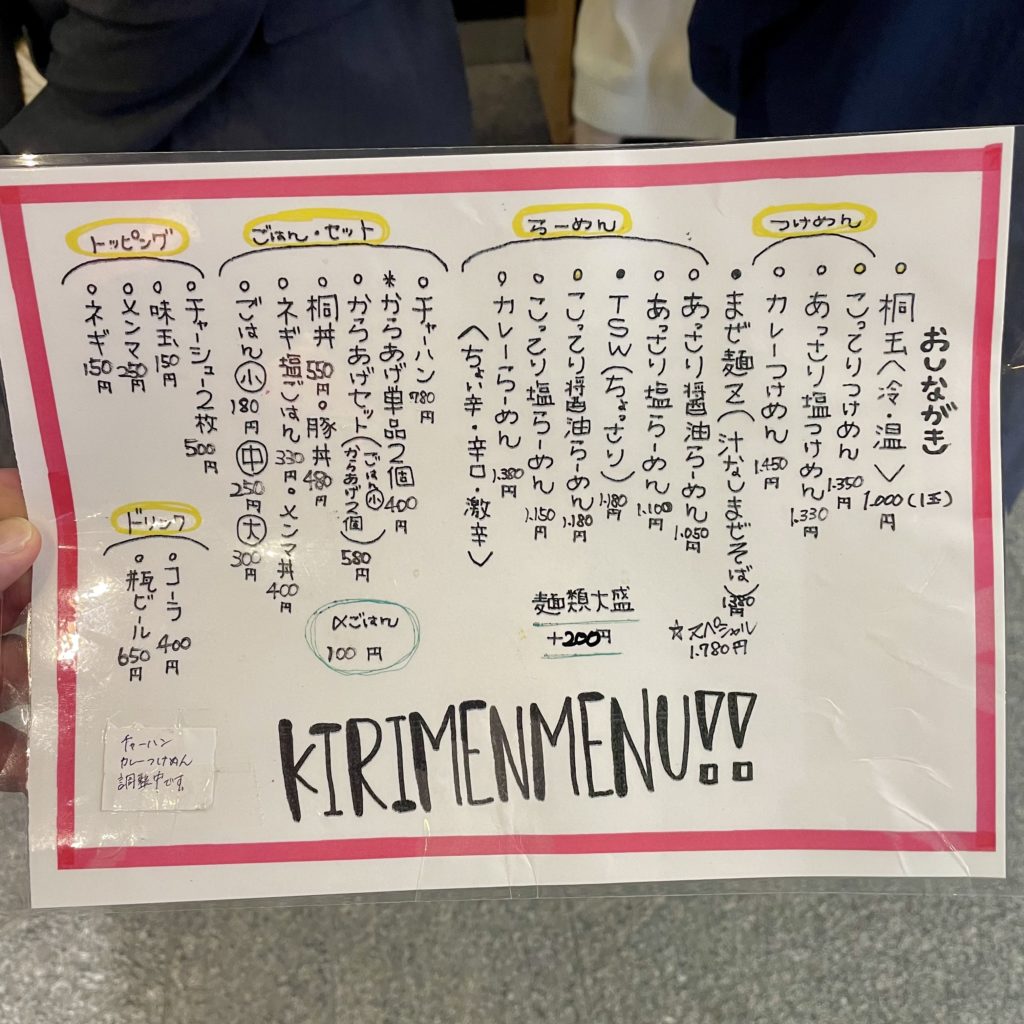 おしながき
つけめん
桐玉〈冷・温〉 1.000円(1玉)
こってりつけめん 1.350円
あっさり塩つけめん 1.330円
カレーつけめん 1.450円
まぜ麺Z(汁なしまぜそば) 1.380円
☆スペシャル
1.780円
らーめん
あっさり醤油らーめん 1.050円
あっさり塩らーめん 1.100円
TSW(ちょっさり) 1.180円
こってり醤油らーめん 1.180円
こってり塩らーめん 1.150円
カレーらーめん 1.380円
〈ちょい辛・辛口・激辛〉
麺類大盛
+200円
ごはん・セット
チャーハン 780円
*からあげ単品2個 400円
からあげセット(ごはん小 からあげ2個) 580円
桐丼 550円 豚丼 480円
ネギ塩ごはん 330円 メンマ丼 400円
ごはん 小 180円 中 250円 大 300円
〆ごはん
100円
トッピング
チャーシュー2枚 500円
味玉 150円
メンマ 250円
ネギ 150円
ドリンク
コーラ 400円
瓶ビール 650円
チャーハン
カレーつけめん
調整中です。
KIRIMENMENU!!